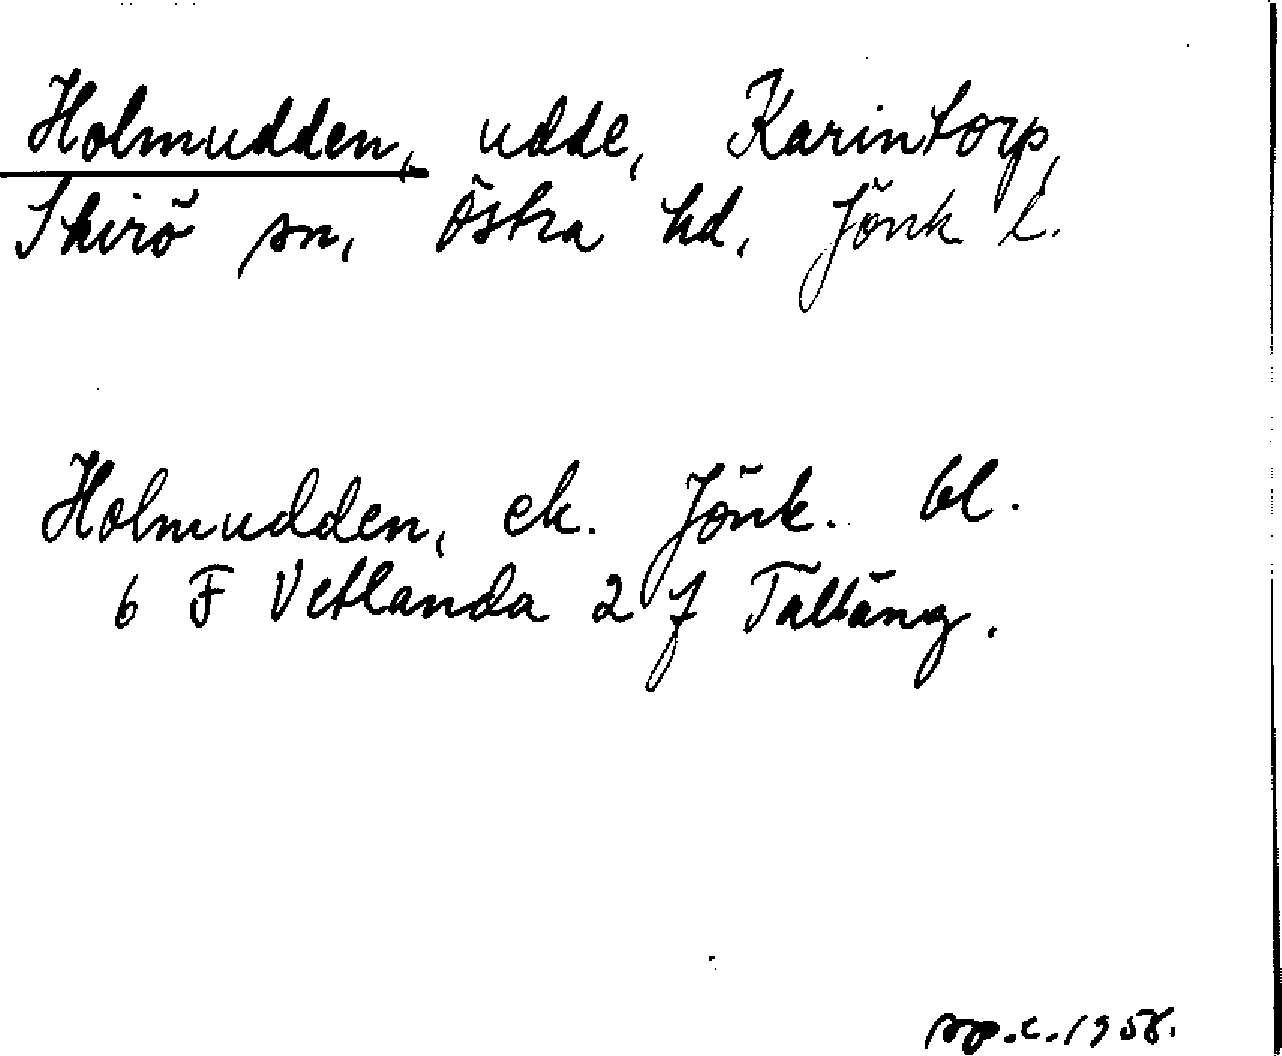 Holmudden, udde, Karintorp,
Skirö sn, Östra hd. Jönk l.
Holmudden, ek. Jönk. bl.
6 F Vetlanda 2 f Talläng.
sp.c. 1958.